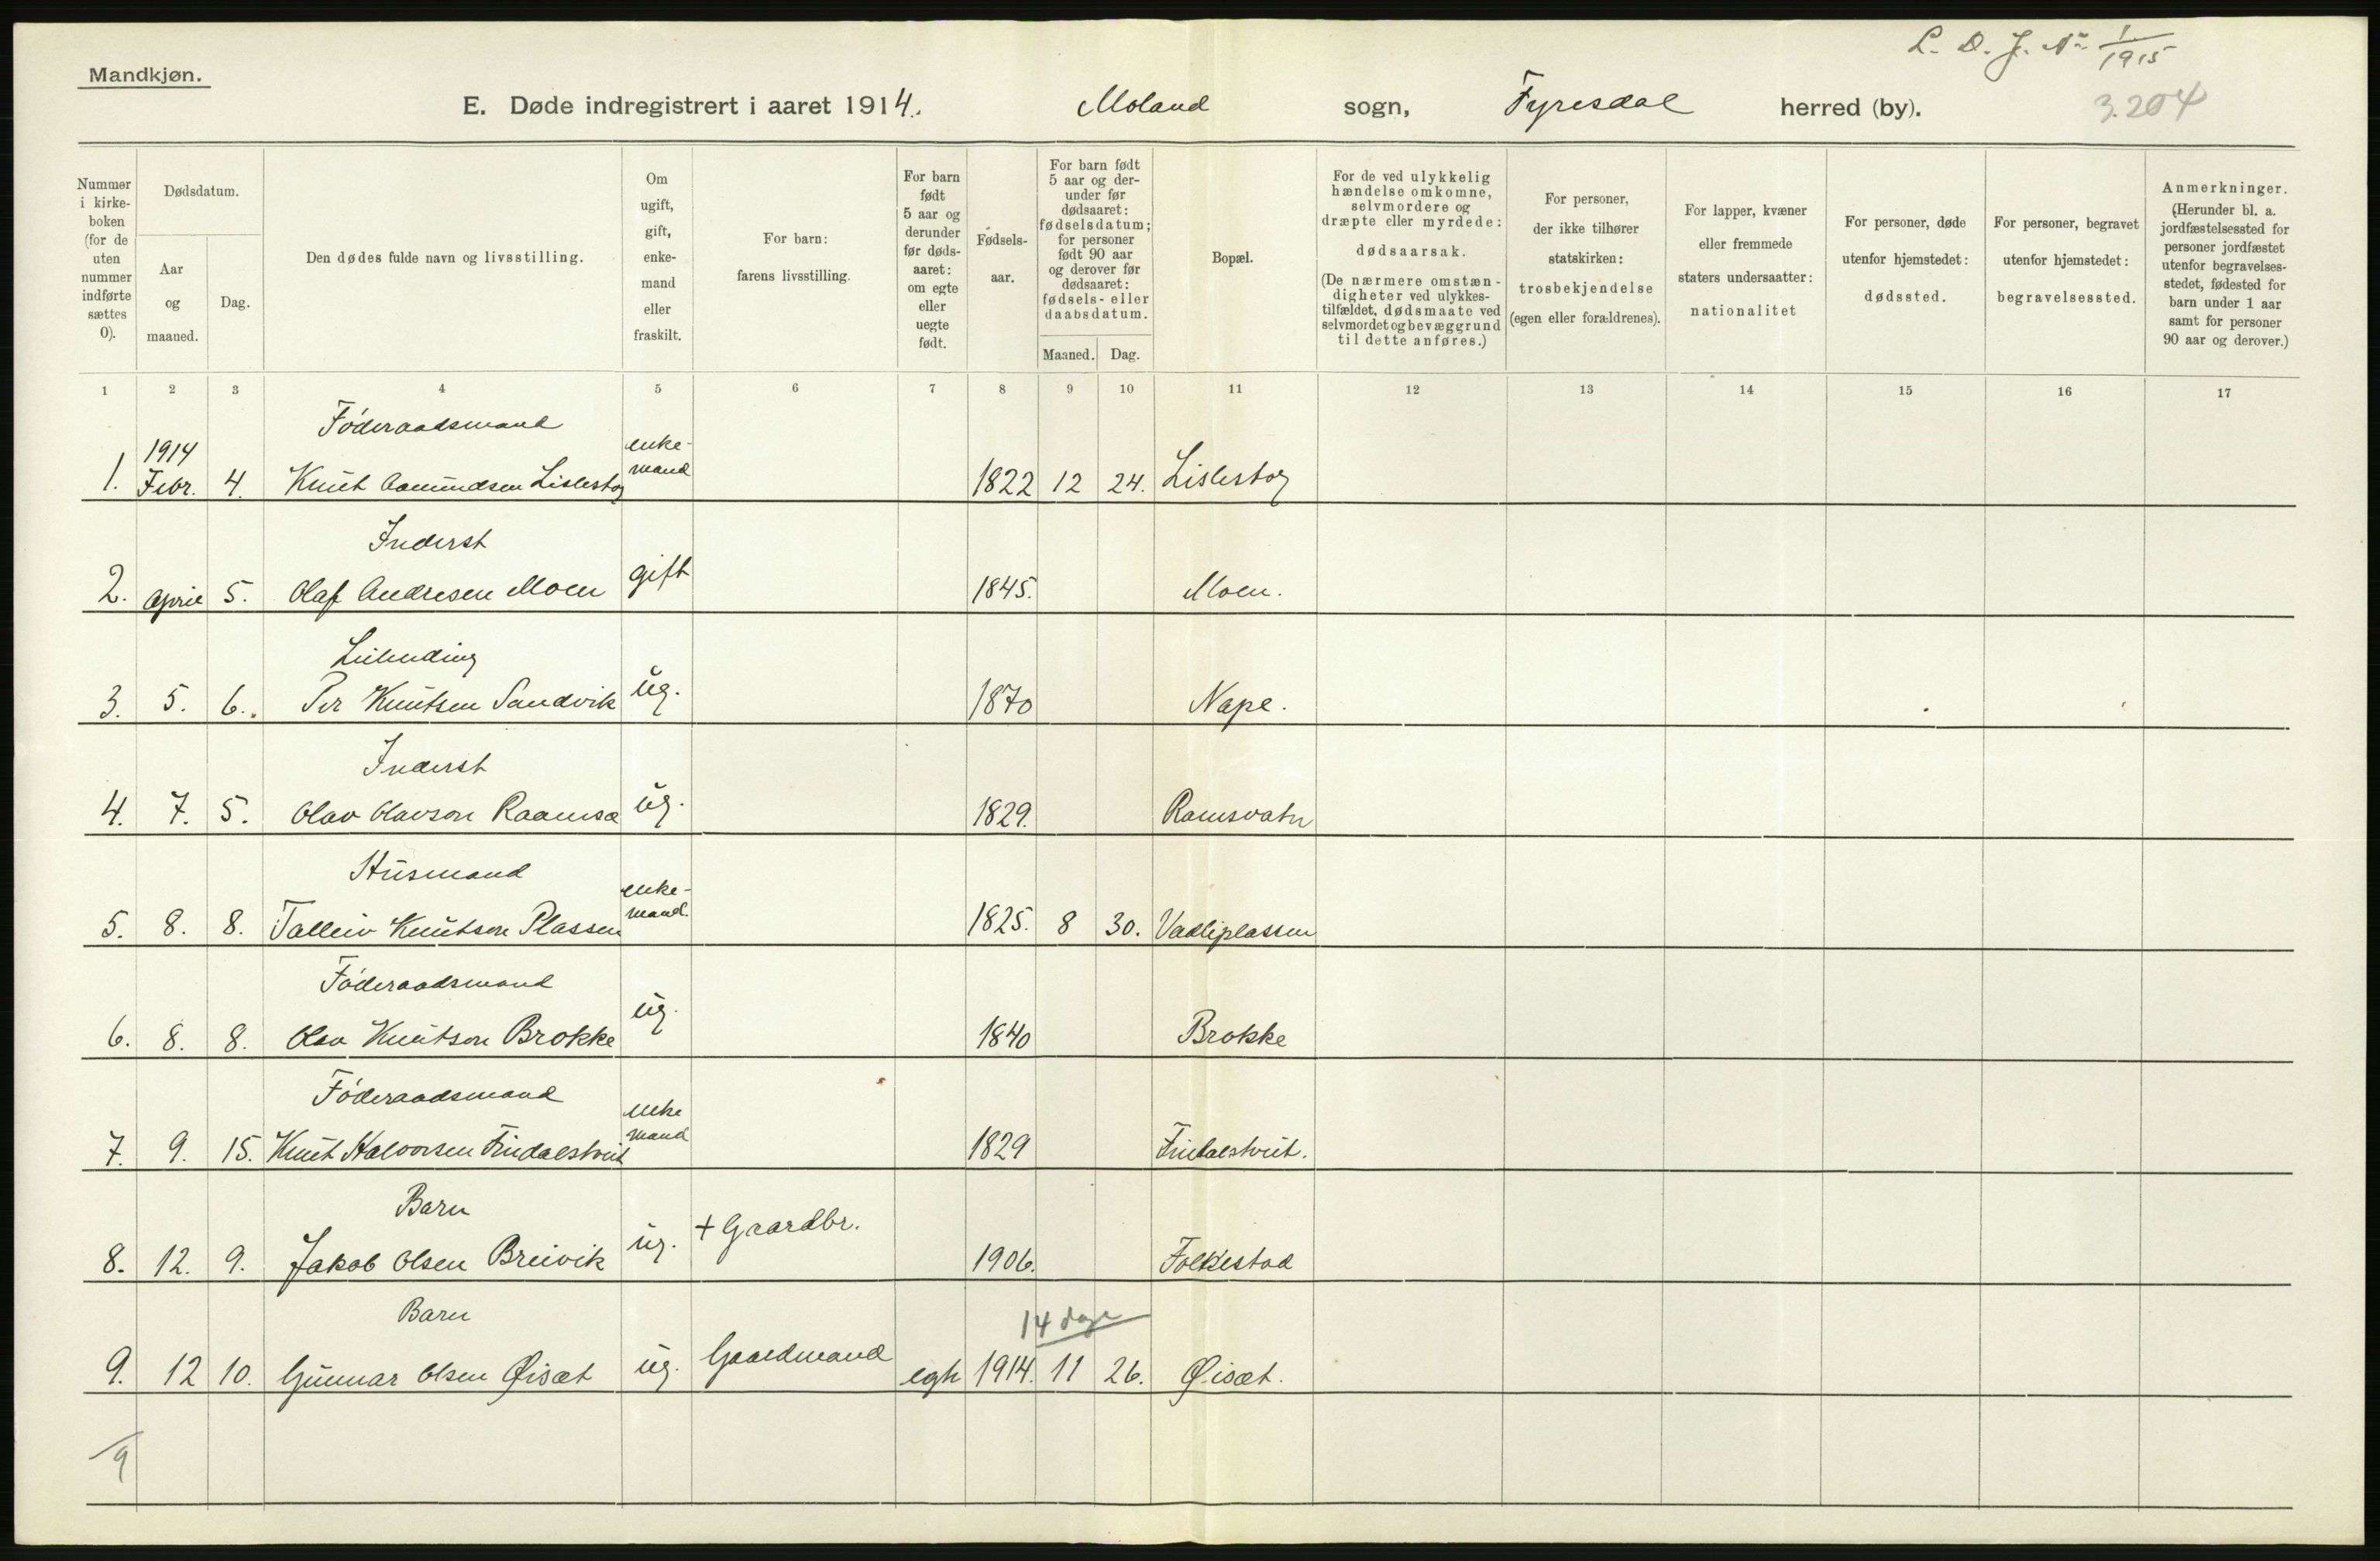 L. D. J. No 1/1915
Mandkjøn.
E. Døde indregistrert i aaret 1914. Moland sogn, Fyresdal herred (by). 3.204
Nummer i kirkeboken (for de uten nummer indførte sættes 0).
Dødsdatum.
Aar og maaned.
Dag.
Den dødes fulde navn og livsstilling.
Om ugift, gift, enkemand eller fraskilt.
For barn: farens livsstilling.
For barn født 5 aar og derunder før dødsaaret: om egte eller uegte født.
Fødselsaar.
For barn født 5 aar og derunder før dødsaaret: fødselsdatum; for personer født 90 aar og derover før dødsaaret: fødsels- eller daabsdatum.
Maaned. Dag.
Bopæl.
For de ved ulykkelig hændelse omkomne, selvmordere og dræpte eller myrdede: dødsaarsak.
(De nærmere omstændigheter ved ulykkestilfældet, dødsmaate ved selvmordet og bevæggrund til dette anføres.)
For personer, der ikke tilhører statskirken: trosbekjendelse (egen eller forældrenes).
For lapper, kvæner eller fremmede staters undersaatter: nationalitet
For personer, døde utenfor hjemstedet: dødssted.
For personer, begravet utenfor hjemstedet: begravelsessted.
Anmerkninger.
(Herunder bl. a. jordfæstelsessted for personer jordfæstet utenfor begravelsesstedet, fødested for barn under 1 aar samt for personer 90 aar og derover.)
1 2 3 4 5 6 7 8 9 10 11 12 13 14 15 16 17
Føderaadsmand
1. 1914 Febr. 4. Knut Aamundsen Lislestog enkemand 1822 12 24. Lislestog
Inderst
2. April 5. Olaf Andresen Moen gift 1845. Moen.
Leilending
3. 5. 6. Per Knutsen Sandvik ug. 1870 Nape.
Inderst
4. 7. 5. Olav Olavson Raamsa ug. 1829. Ramsvatn
Husmand
5. 8. 8. Talleiv Knutson Plassen enkemand. 1825. 8 30. Vadliplassen
Føderaadsmand
6. 8. 8. Olav Knutson Brokke ug. 1840 Brokke
Føderaadsmand
7. 9. 15. Knut Halvorsen enkemand 1829
Barn
8. 12. 9. Jakob Olsen Breivik ug. + Gaardbr. 1906. Folkestad
Barn
14 dage
9. 12 10. Gunnar Olsen Øisæt ug. Gaardmand egte 1914. 11 26. Øisæt.
9